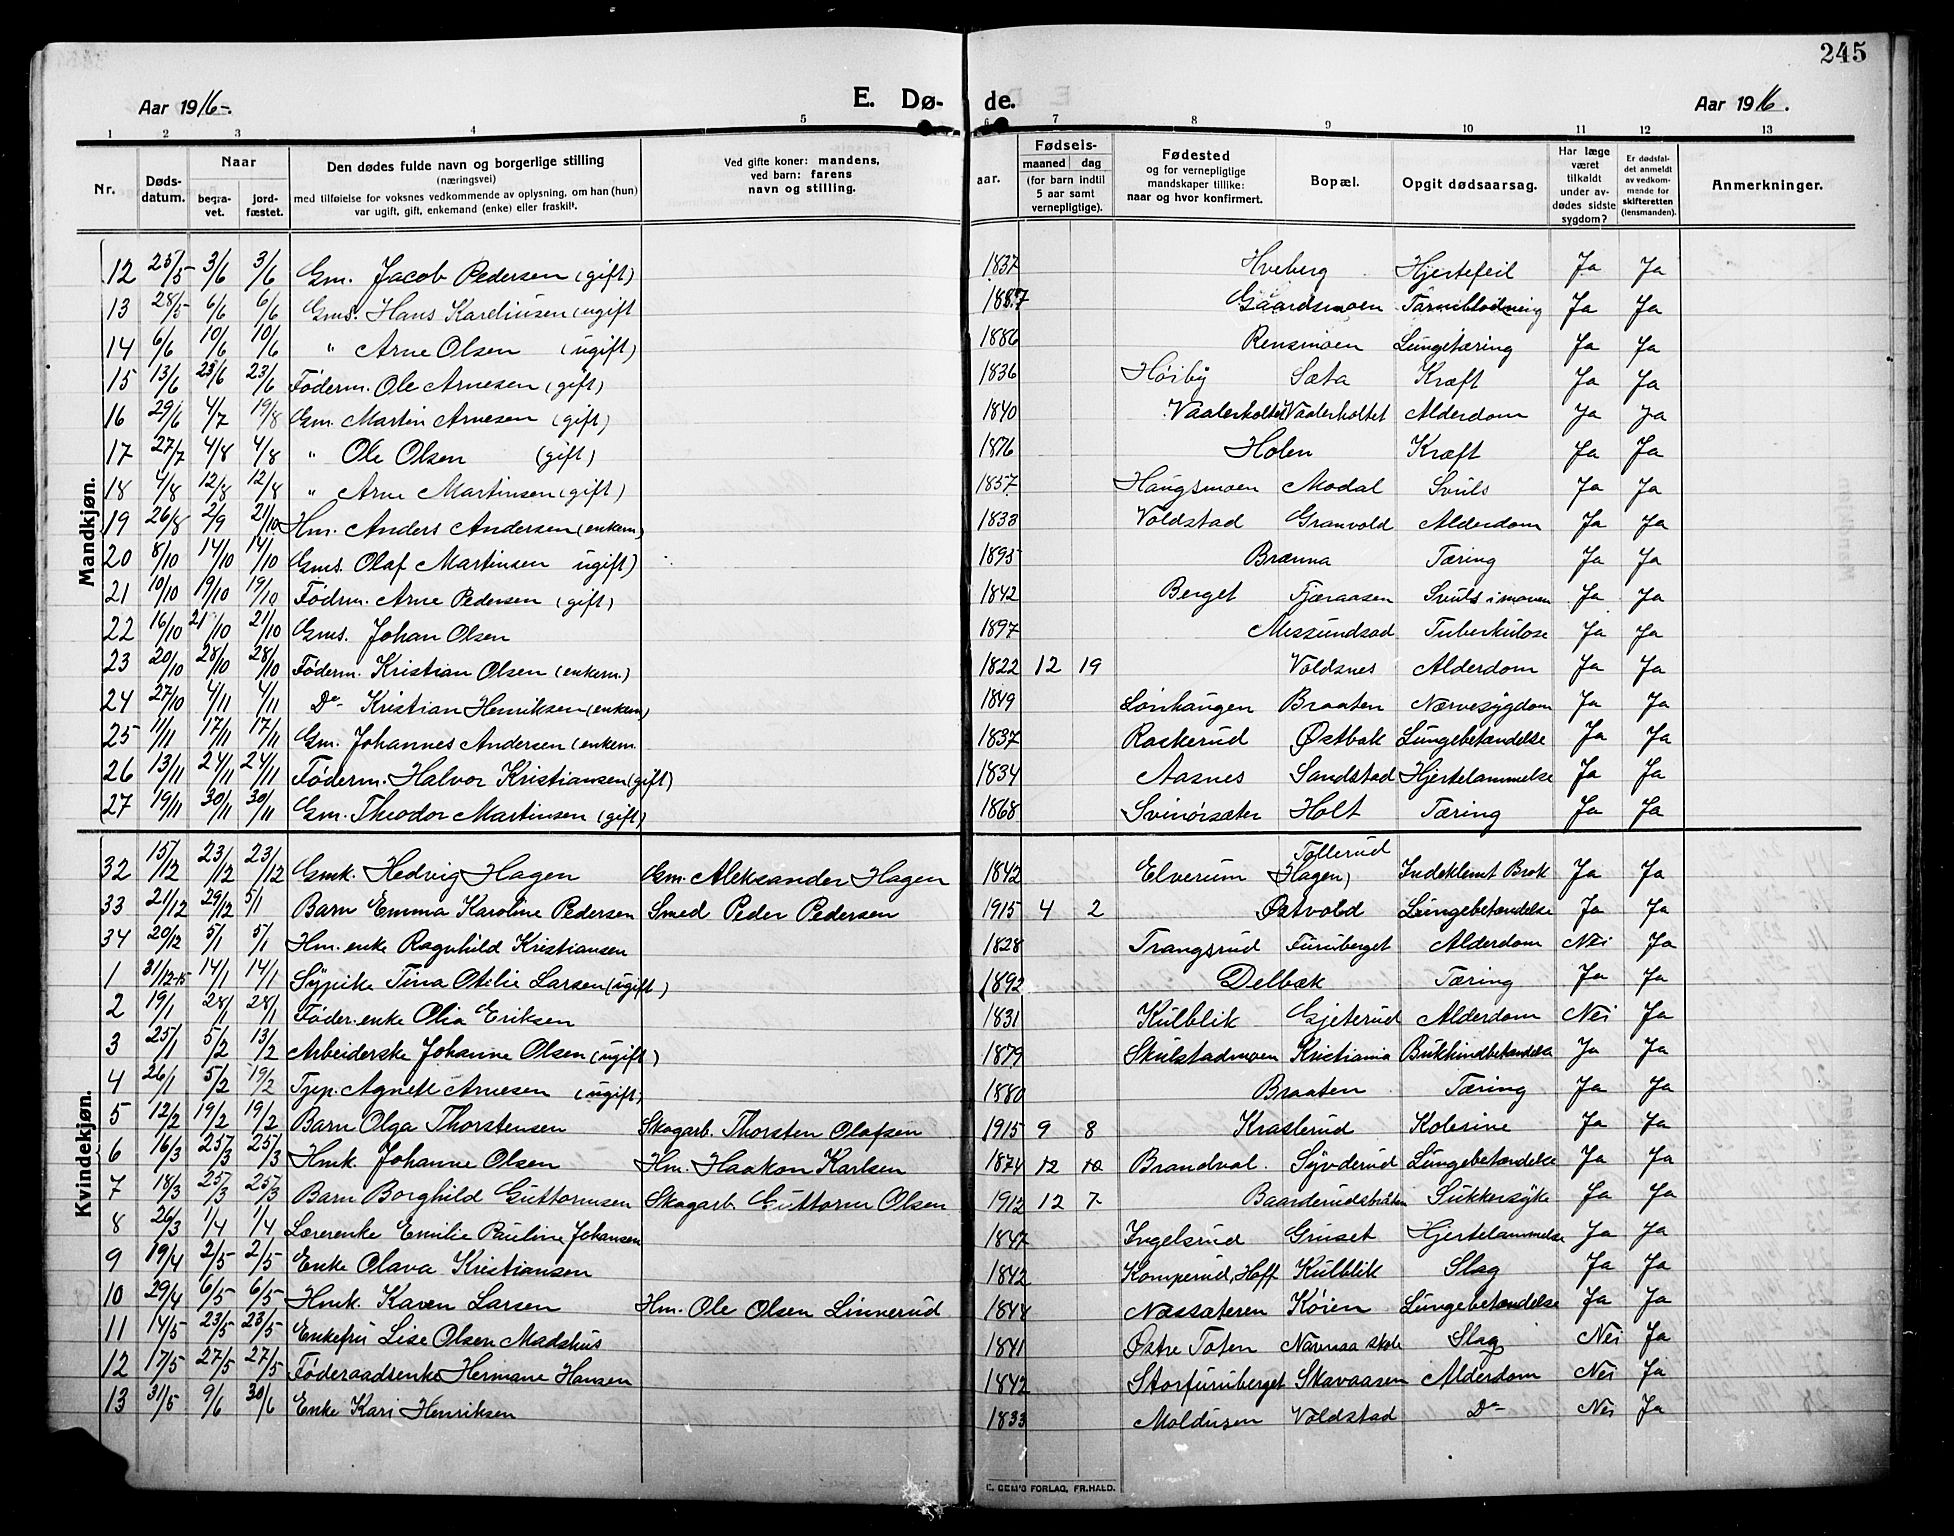 245
Aar 1916.
E. Dø-
de.
Aar 1916.
1 2 3 4 5 6 7 8 9 10 11 12 13
Nr. | Døds-datum. | Naar begra-vet. | jord-fæstet. | Den dødes fulde navn og borgerlige stilling (næringsvei) med tilføielse for voksnes vedkommende av oplysning, om han (hun) var ugift, gift, enkemand (enke) eller fraskilt. | Ved gifte koner: mandens, ved barn: farens navn og stilling. | aar. | Fødsels- maaned dag (for barn indtil 5 aar samt vernepligtige). | Fødested og for vernepligtige mandskaper tillike: naar og hvor konfirmert. | Bopæl. | Opgit dødsaarsag. | Har læge været tilkaldt under av-dødes sidste sygdom? | Er dødsfal-det anmeldt av vedkom-mende for skifteretten (lensmanden). | Anmerkninger.
Mandkjøn.
12 25/5 3/6 3/6 Gm. Jacob Pedersen (gift) 1837 Hveberg Hjertefeil Ja Ja
13 28/5 6/6 6/6 Gms. Hans Kareliusen (ugift 1887 Gaardsmoen Tarmblødning Ja Ja
14 6/6 10/6 10/6 " Arne Olsen (ugift) 1886 Rensmoen Lungetæring Ja Ja
15 13/6 23/6 23/6 Føderm. Ole Arnesen (gift) 1836 Høiby Sæta Kræft Ja Ja
16 29/6 4/7 19/8 Gm. Martin Arnesen (gift) 1840 Vaalerholtet Vaalerholtet Alderdom Ja Ja
17 27/7 4/8 4/8 " Ole Olsen (gift) 1876 Holen Kræft Ja Ja
18 4/8 12/8 12/8 " Arne Martinsen (gift) 1857 Haugsmoen Modal Svuls Ja Ja
19 26/8 2/9 21/10 Hm. Anders Andersen (enkem) 1833 Voldstad Granvold Alderdom Ja Ja
20 8/10 14/10 14/10 Gms. Olaf Martinsen ugift) 1895 Brænna Tæring Ja Ja
21 10/10 19/10 19/10 Føderm. Arne Pedersen (gift) 1842 Berget Fjæraasen Svuls i maven Ja Ja
22 16/10 21/10 21/10 Gms. Johan Olsen 1897 Messundsod Tuberkulose Ja Ja
23 20/10 28/10 28/10 Føderm. Kristian Olsen (enkem) 1822 12 19 Voldsnes Alderdom Ja Ja
24 27/10 4/11 4/11 Do Kristian Henriksen (enkem) 1849 Lønhaugen Braaten Nærvesygdom Ja Ja
25 11/11 17/11 17/11 Gm. Johannes Andersen (enkem. 1837 Raskerud Østbak Lungebetændelse Ja Ja
26 13/11 24/11 24/11 Føderm. Halvor Kristiansen (gift) 1834 Aasnes Sandstad Hjertelammelse Ja Ja
27 19/11 30/11 30/11 Gm. Theodor Martinsen (gift) 1868 Svinørsæter Holt Tæring Ja Ja
Kvindekjøn.
32 15/12 23/12 23/12 Gmk. Hedvig Hagen Gm. Aleksander Hagen 1842 Elverum Tollerud Hagen) Indeklemt Brok Ja Ja
33 21/12 29/12 5/1 Barn Emma Karoline Pedersen Smed Peder Pedersen 1915 4 2 Østvold Lungebetændelse Ja Ja
34 20/12 5/1 5/1 Hm. enke Ragnhild Kristiansen 1828 Trangsrud Furuberget Alderdom Nei Ja
1 31/12-15 14/1 14/1 Sypike Tina Otilie Larsen (ugift) 1892 Delbæk Tæring Ja Ja
2 19/1 28/1 28/1 Føder. enke Olia Eriksen 1831 Kulblik Gjeterud Alderdom Nei Ja
3 25/1 5/2 13/2 Arbeiderske Johanne Olsen (ugift) 1879 Skulstadmoen Kristiania Bukhindbetændelse Ja Ja
4 26/1 5/2 19/2 Tjep. Agnete Arnesen (ugift) 1880 Braaten Tæring Ja Ja
5 12/2 19/2 19/2 Barn Olga Thorstensen Skogarb. Thorsten Olafsen 1915 9 8 Kraslerud Kolerine Ja Ja
6 16/3 25/3 25/3 Hmk. Johanne Olsen Hm. Haakon Karlsen 1874 12 10 Brandval. Syvderud Lungebetændelse Ja Ja
7 18/3 25/3 25/3 Barn Borghild Guttormsen Skogarb. Guttorm Olsen 1912 12 7 Baarderudsbråten Sukkersyke Ja Ja
8 26/3 1/4 1/4 Lærerenke Emilie Pauline Johansen 1847 Ingelsrud Gruset Hjertelammelse Ja Ja
9 19/4 2/5 2/5 Enke Olava Kristiansen 1842 Komperud, Hoff Kulblik Slag Ja Ja
10 29/4 6/5 6/5 Hmk. Karen Larsen Hm. Ole Olsen Linnerud 1844 Næssæteren Køien Lungebetændelse Ja Ja
11 14/5 23/5 23/5 Enkefru Lise Olsen Madshus 1841 Østre Toten Navnaa skole Slag Nei Ja
12 17/5 27/5 27/5 Føderaadsenke Hermane Hansen 1842 Storfuruberget Skavaasen Alderdom Nei Ja
13 31/5 9/6 30/6 Enke Kari Henriksen 1833 Moldusen Voldstad Do Nei Ja
E. SEM'S FORLAG, FR.HALD.